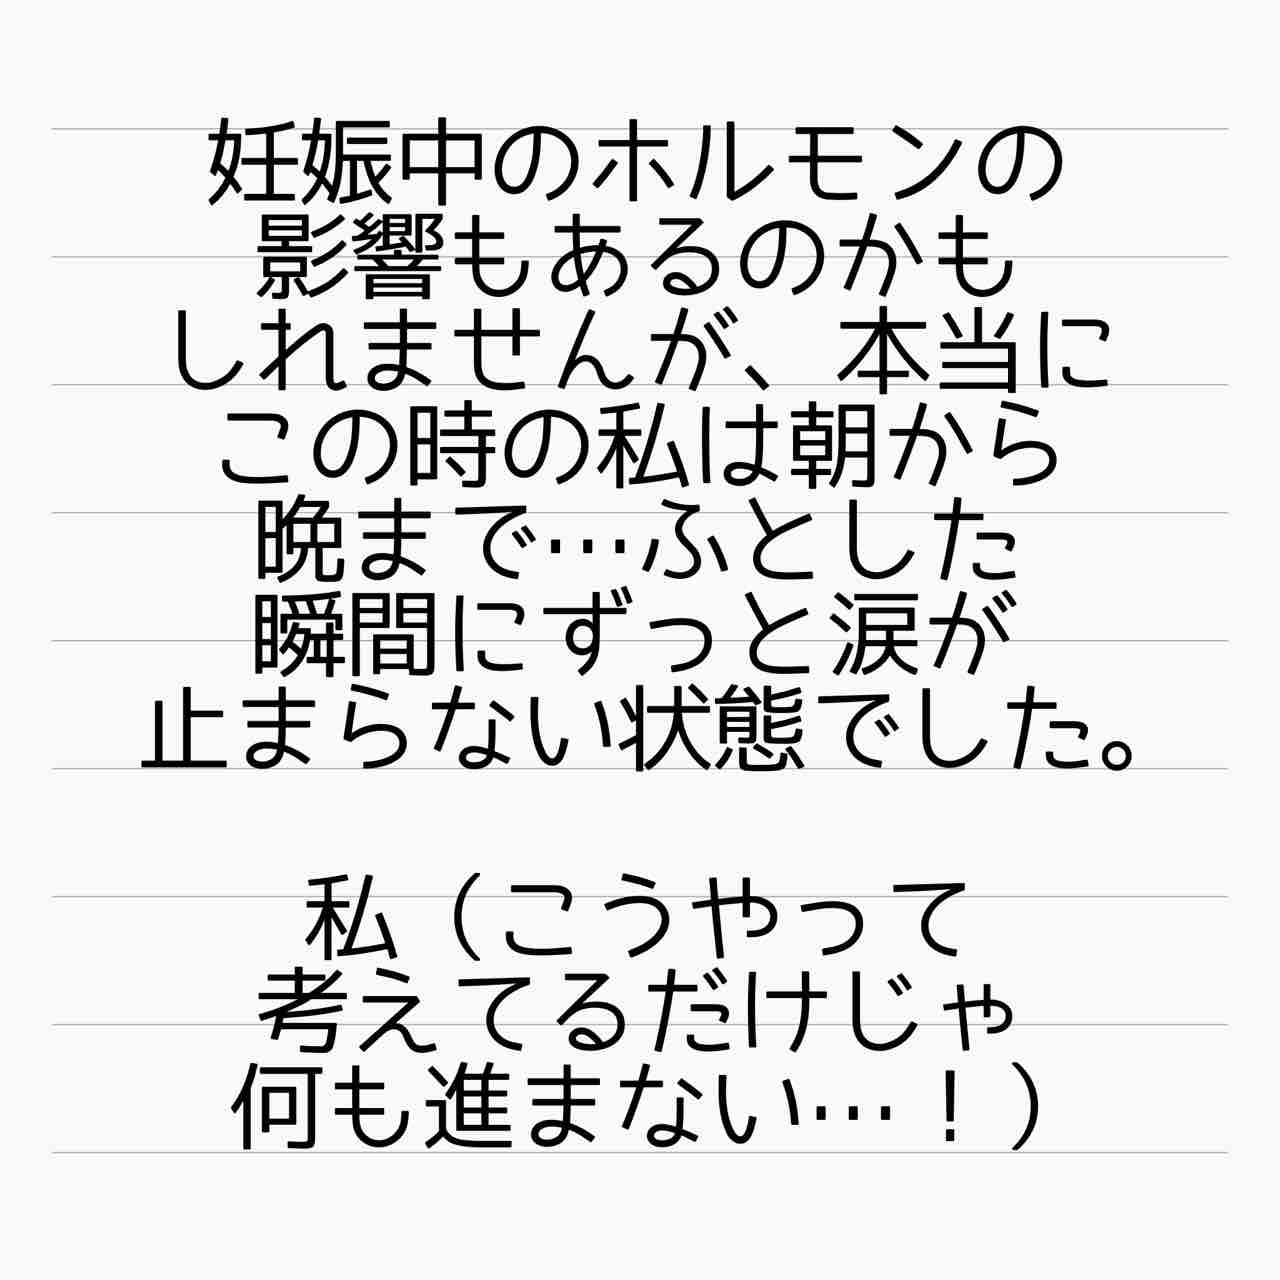 妊娠中のホルモンの
影響もあるのかも
しれませんが、本当に
この時の私は朝から
晩まで…ふとした
瞬間にずっと涙が
止まらない状態でした。
私（こうやって
考えてるだけじゃ
何も進まない…！）